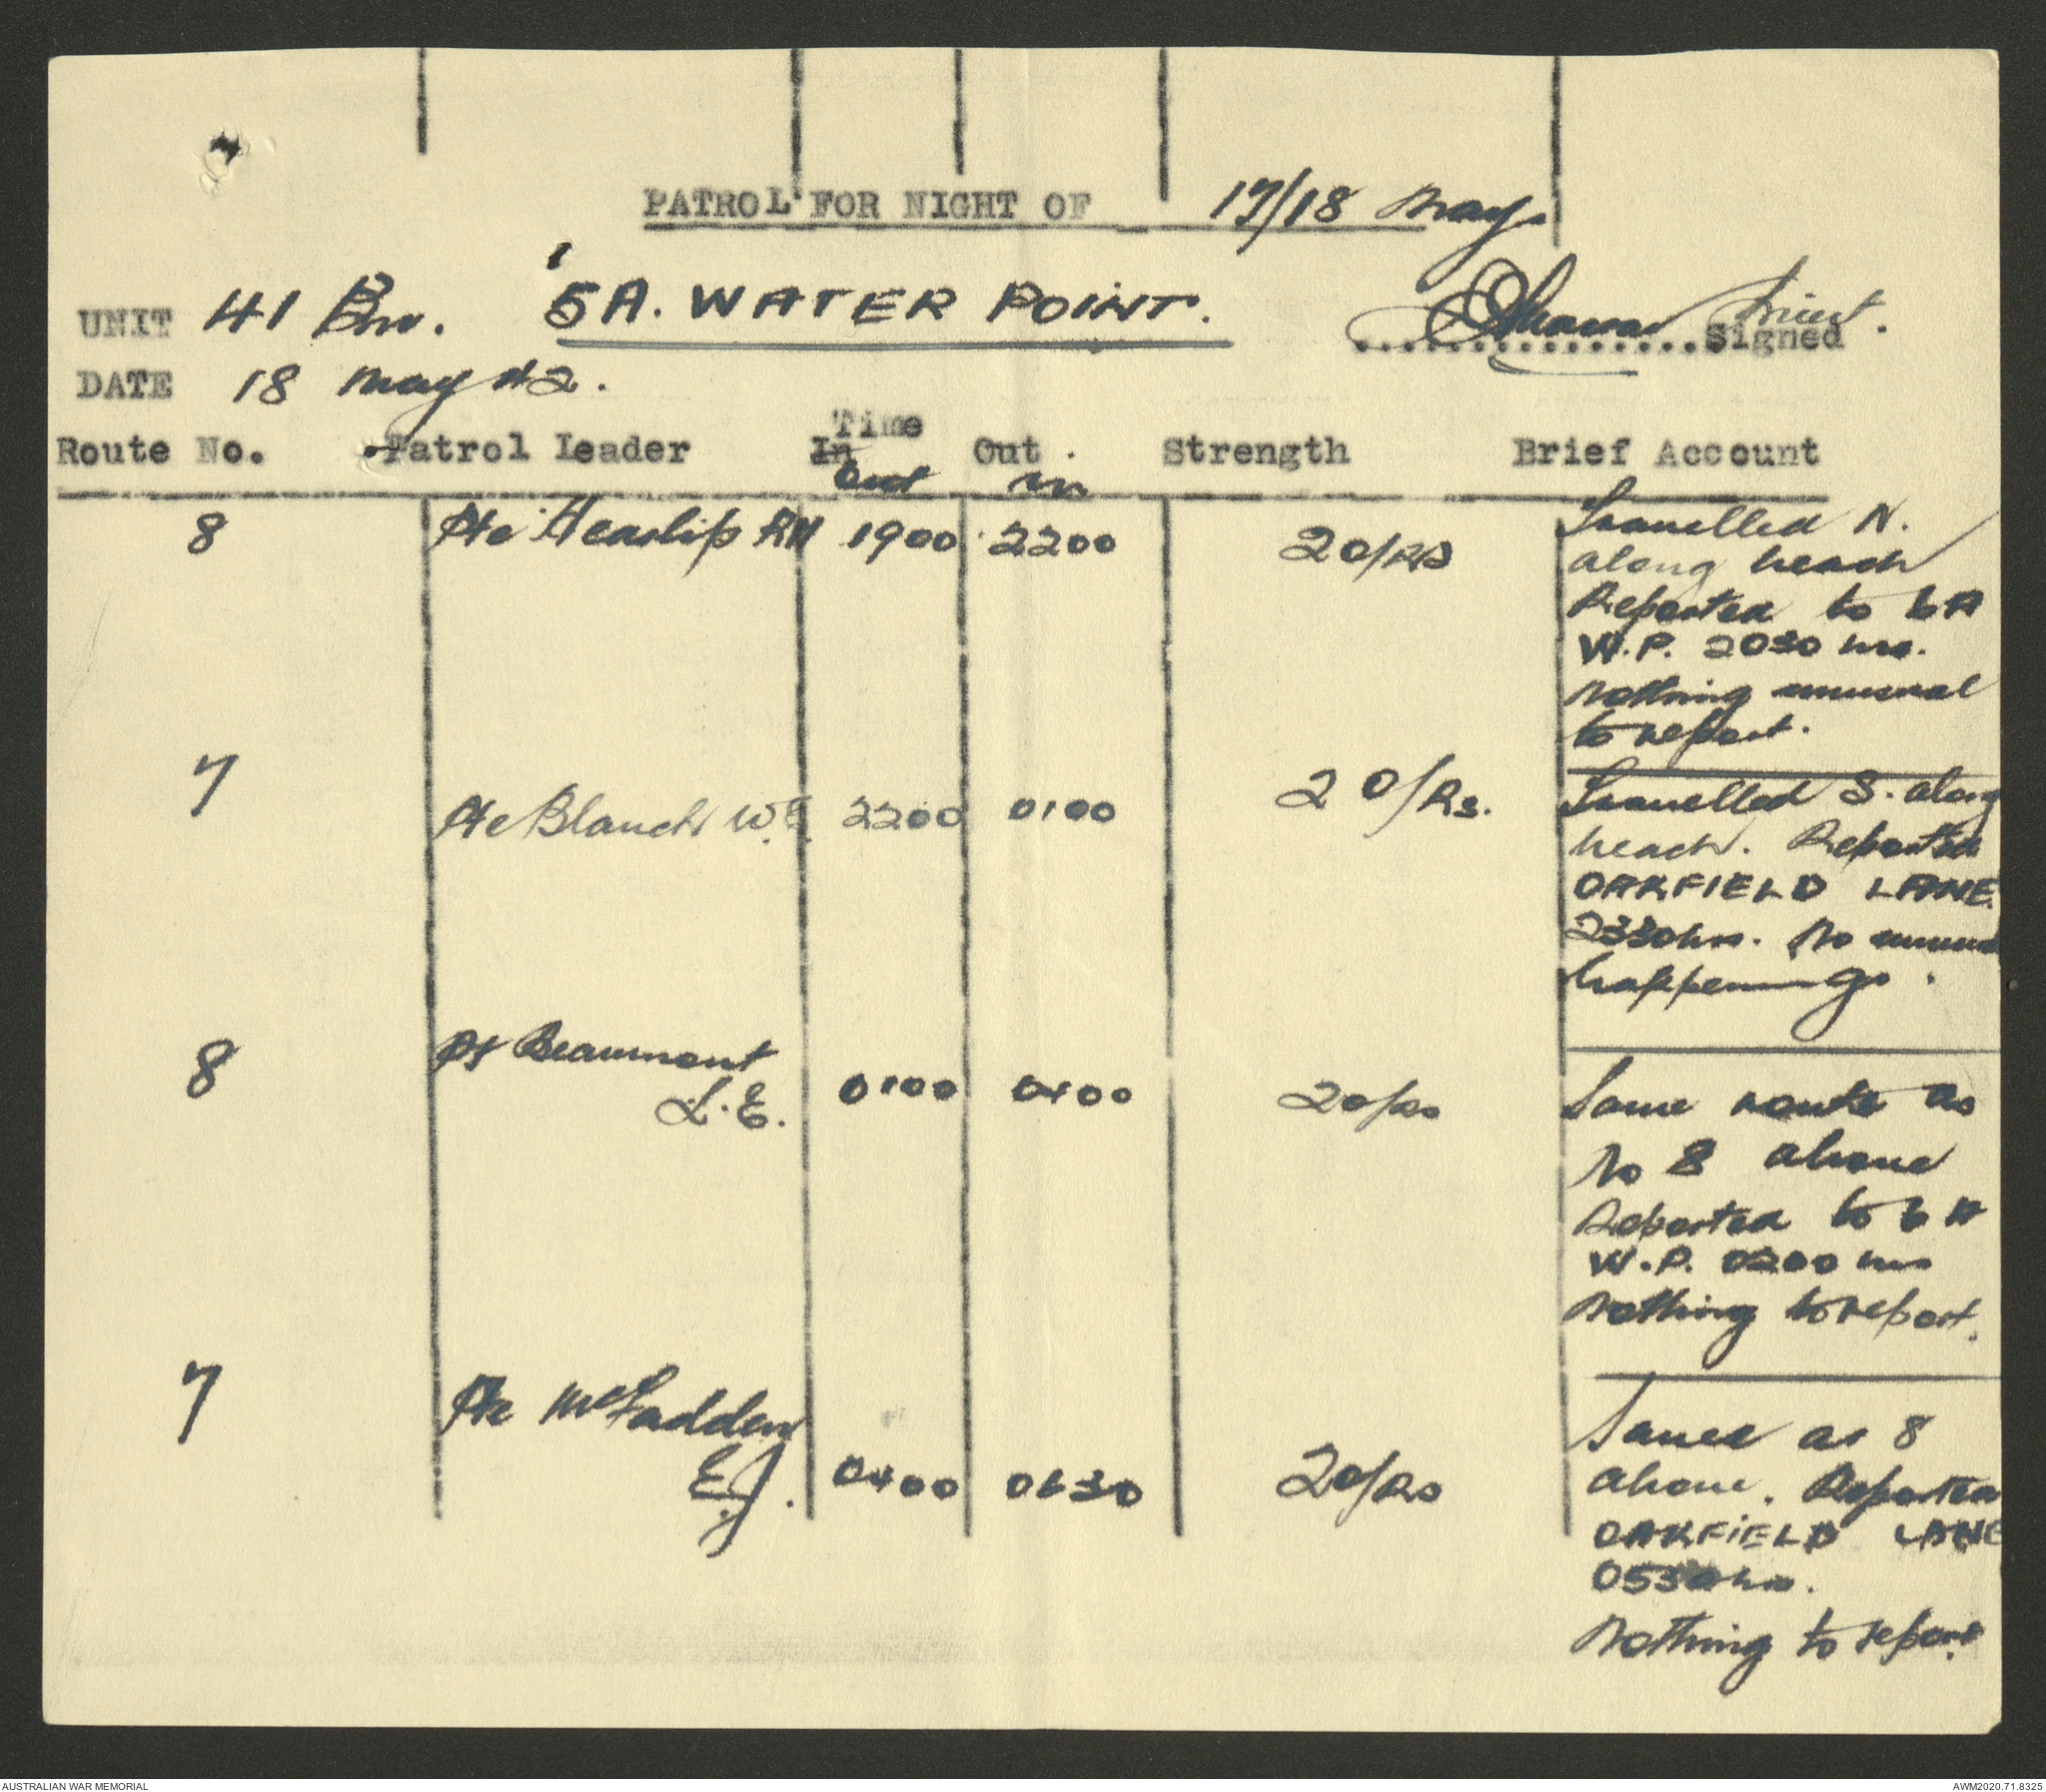 PATROL FOR NIGHT OF 17/18 May.
UNIT 41 Bn. 5A. WATER POINT. Lieut. Signed
DATE 18 May 42.
Route No. Patrol Leader Time In Out Strength Brief Account
out in
8 Pte Heaslip RH 1900 2200 2 O/Rs Travelled N.
along beach
Reported to 6A
W.P. 2030 hrs.
Nothing unusual
to report.
7 Pte Blanch W. 2200 0100 2 O/Rs. Travelled S. along
beach. Reported
OAKFIELD LANE.
2330 hrs. No unusual
happenings.
8 Pt Beaumont
L.E. 0100 0400 2 O/Rs Same route as
No 8 above
Reported to 6A
W.P. 0200 hrs
Nothing to report.
7 Pte McFadden
E.J. 0400 0630 2 O/Rs Same as 8
above. Reported
OAKFIELD LANE
0530 hrs.
Nothing to report
AUSTRALIAN WAR MEMORIAL AWM2020.71.8325